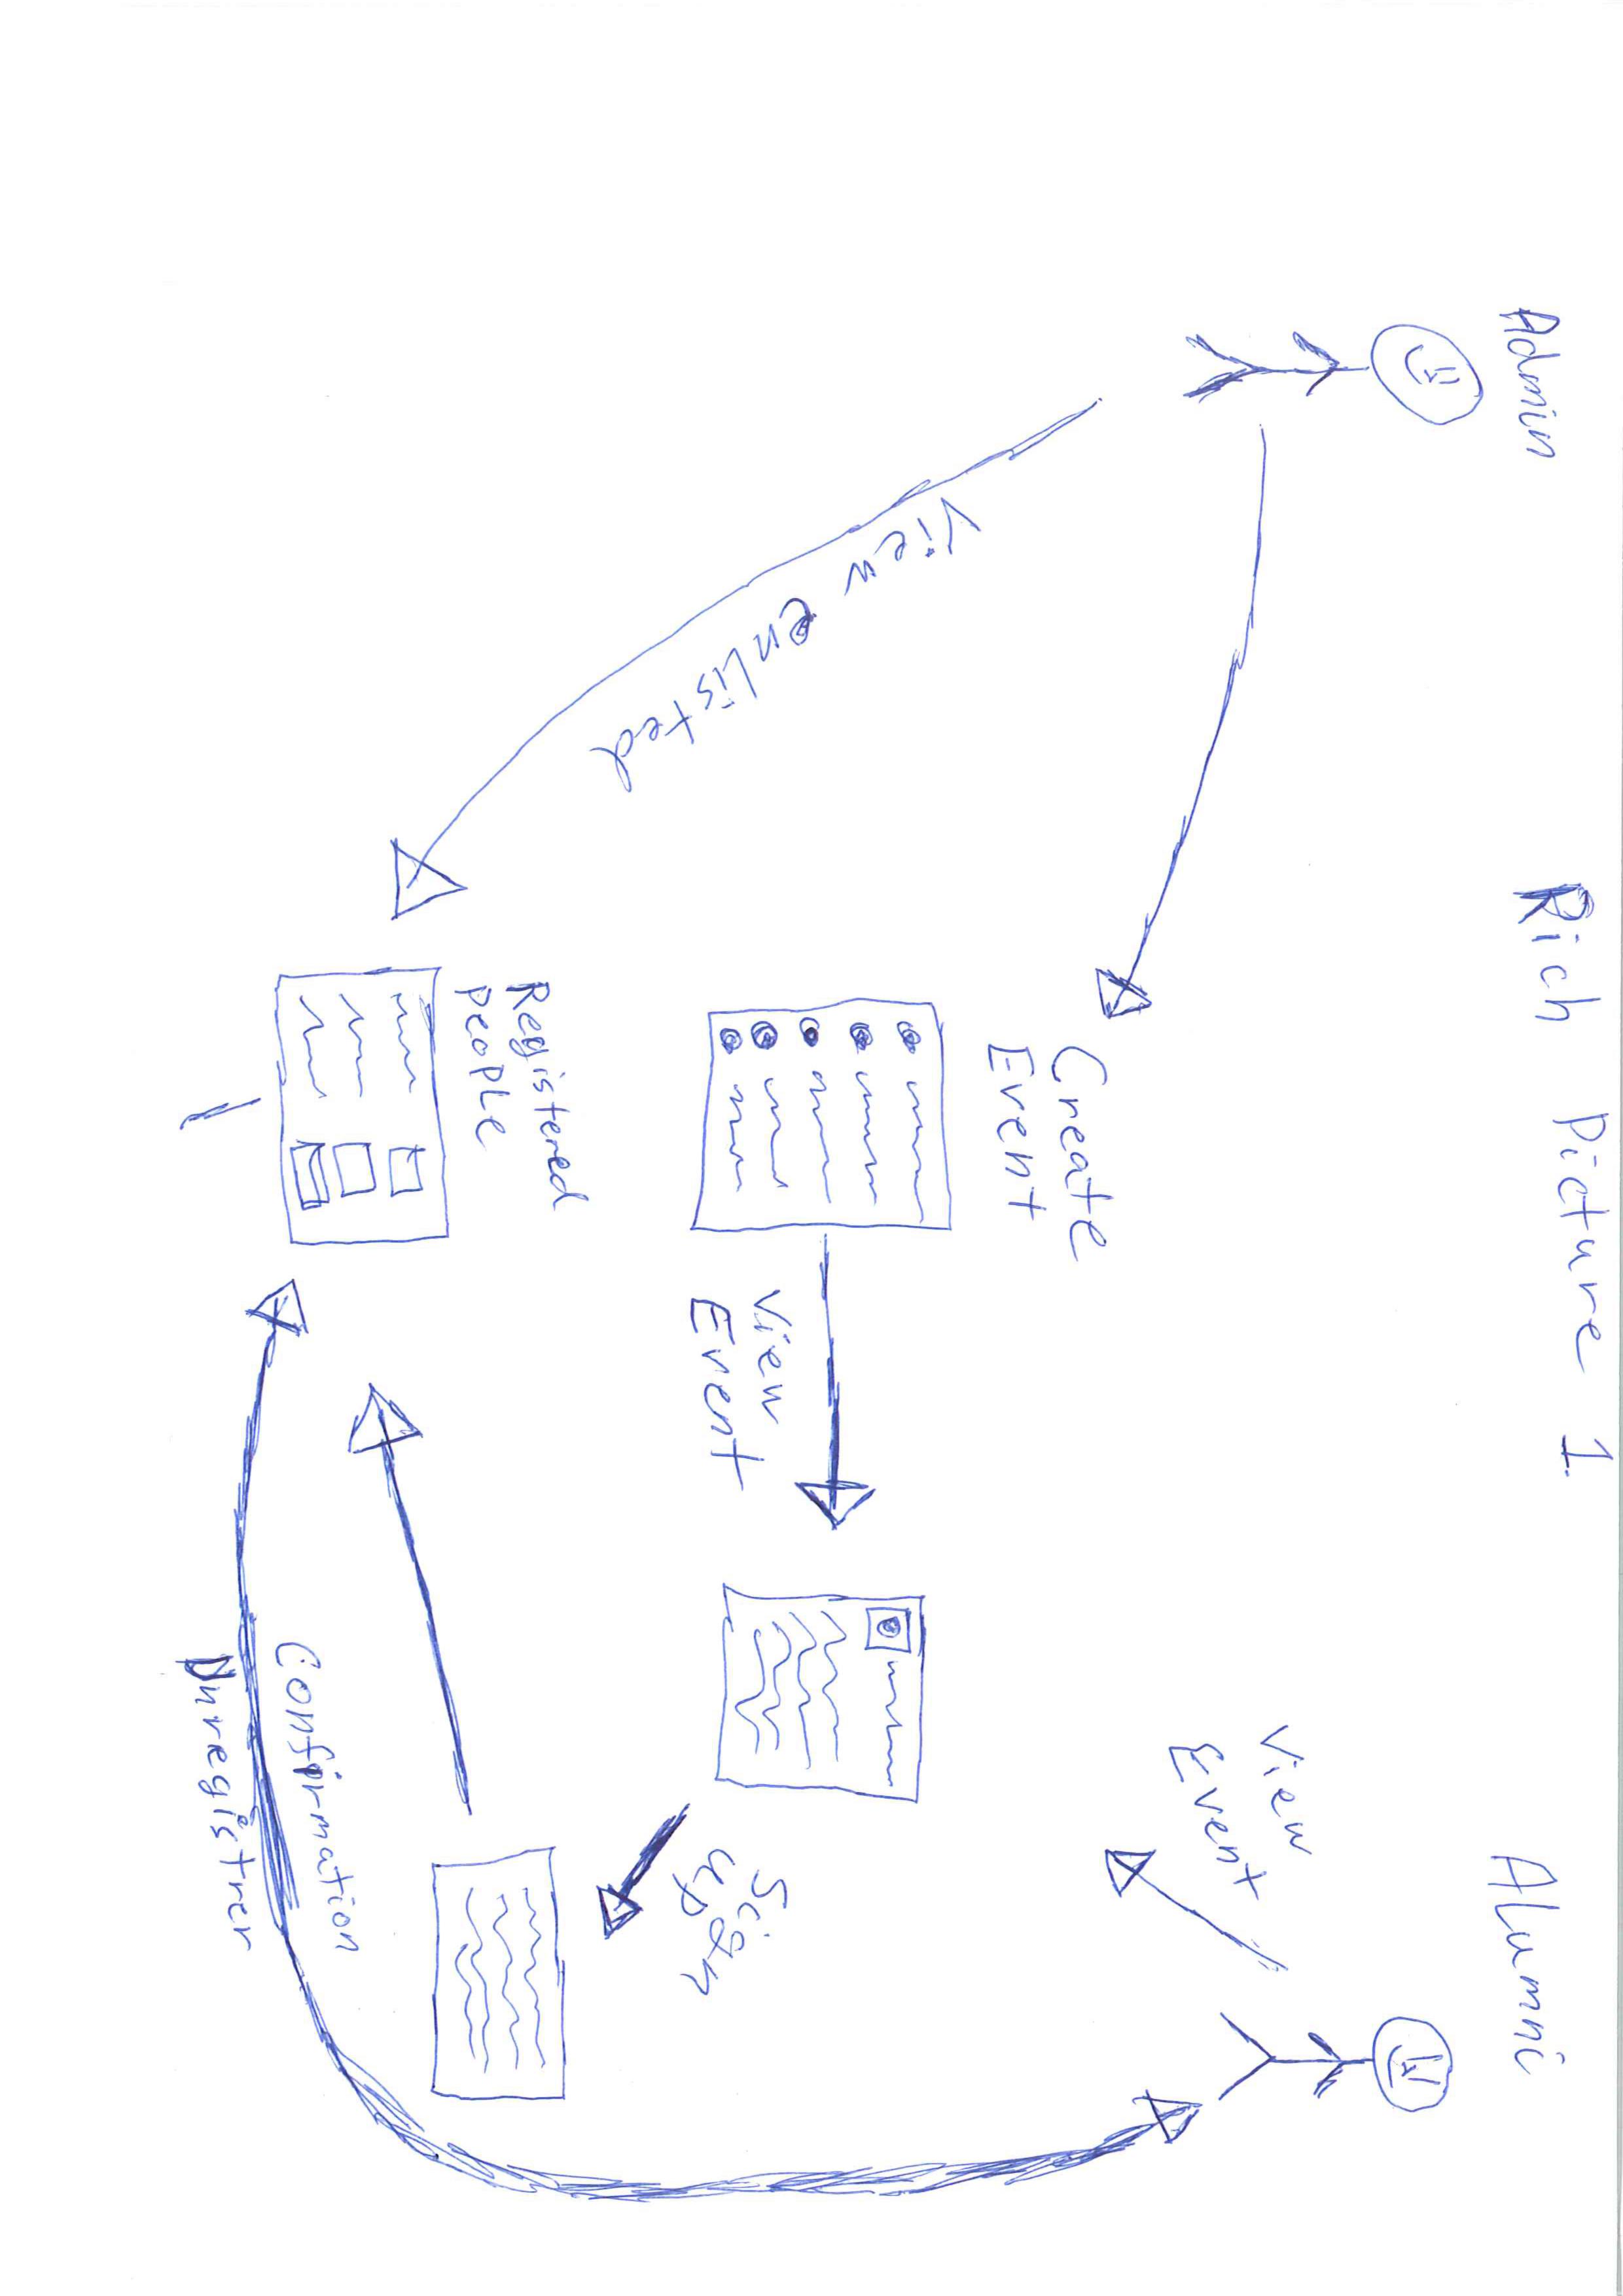 Rich Picture 1.
Admin
Alumni
View
Event
Create
Event
View enlisted
View
Event
Sign
up
Registered
people
Confirmation
Unregistrer